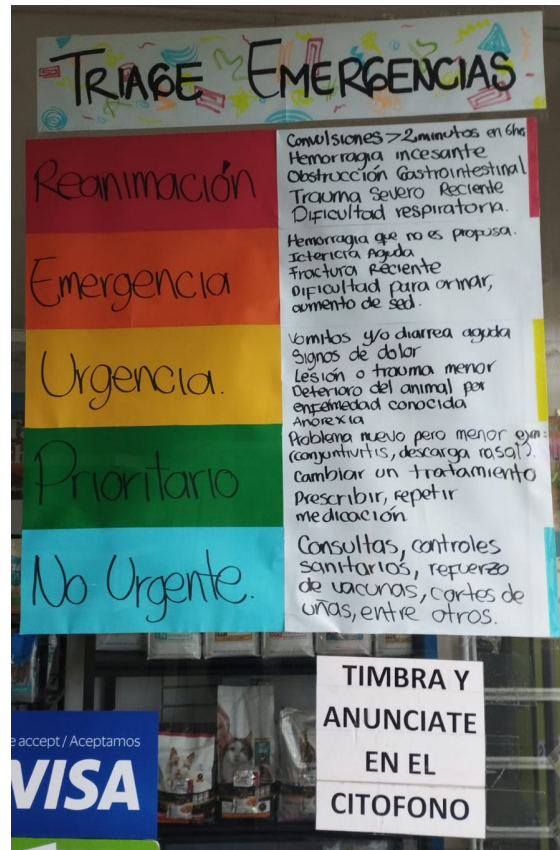 TRIAGE EMERGENCIAS
Reanimación
Convulsiones > 2 minutos en 6hs
Hemorragia incesante
Obstrucción Gastrointestinal
Trauma Severo Reciente
Dificultad respiratoria.
Emergencia
Hemorragia que no es profusa.
Ictericia Aguda
Fractura Reciente
Dificultad para orinar,
aumento de sed.
Urgencia.
Vomitos y/o diarrea aguda
Signos de dolor
Lesión o trauma menor
Deterioro del animal por
enfermedad conocida
Anorexia
Prioritario
Problema nuevo pero menor ejm:
(conjuntivitis, descarga nasal).
Cambiar un tratamiento
Prescribir, repetir
medicación
No Urgente.
Consultas, controles
sanitarios, refuerzo
de vacunas, cortes de
uñas, entre otros.
TIMBRA Y
ANUNCIATE
EN EL
CITOFONO
accept / Aceptamos
VISA